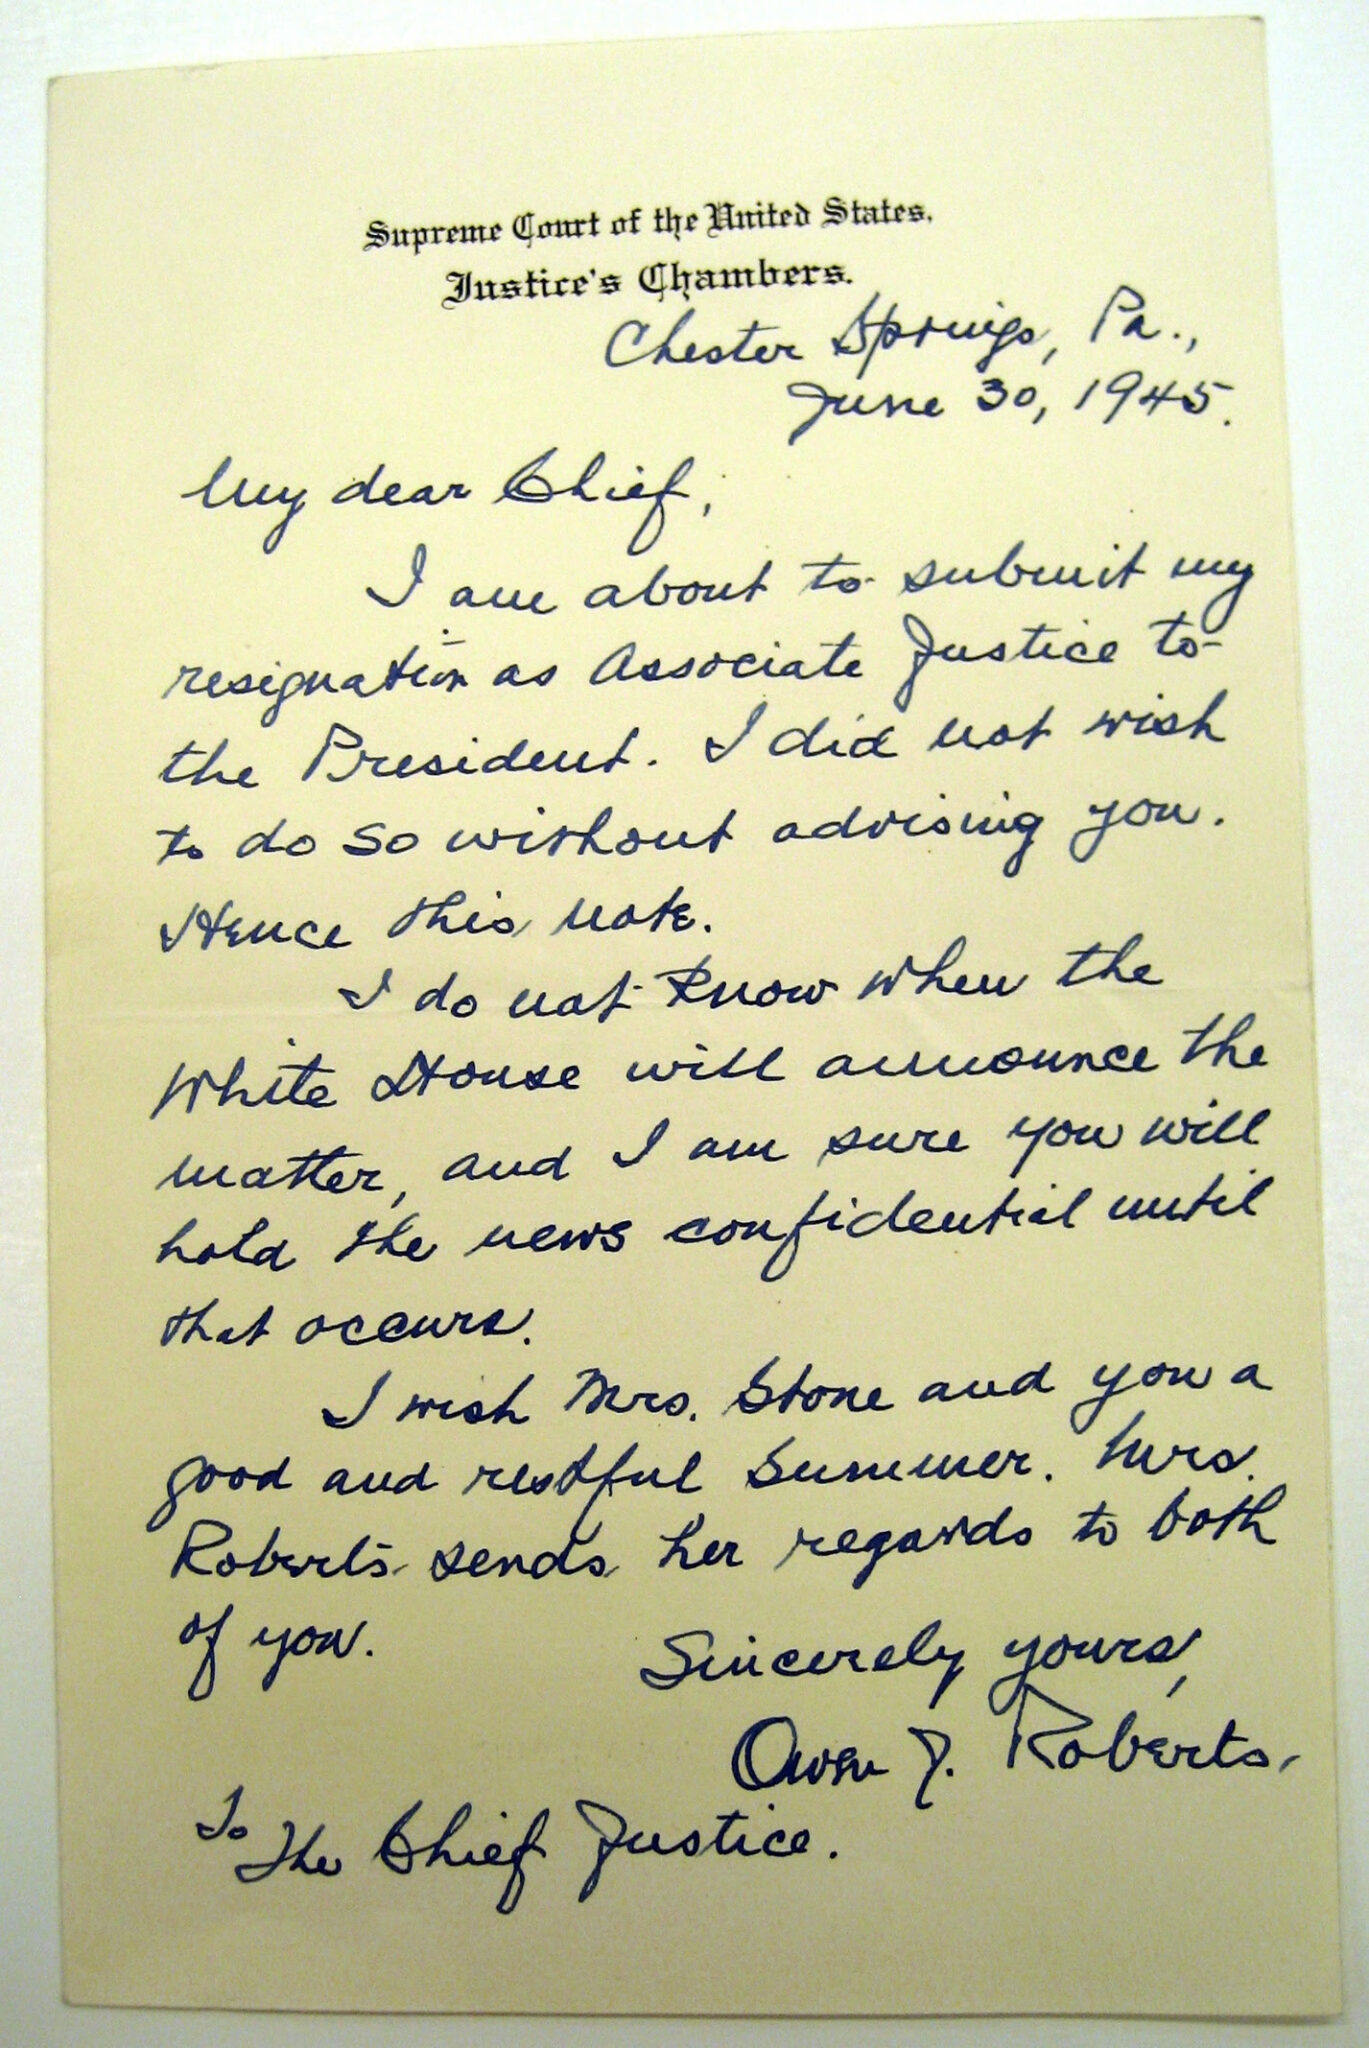 Supreme Court of the United States.
Justice's Chambers.
Chester Springs, Pa.,
June 30, 1945.
My dear Chief,
I am about to submit my
resignation as Associate Justice to
the President. I did not wish
to do so without advising you.
Hence this note.
I do not know when the
White House will announce the
matter, and I am sure you will
hold the news confidential until
that occurs.
I wish Mrs. Stone and you a
good and restful summer. Mrs.
Roberts sends her regards to both
of you.
Sincerely yours,
Owen J. Roberts.
To
The Chief Justice.